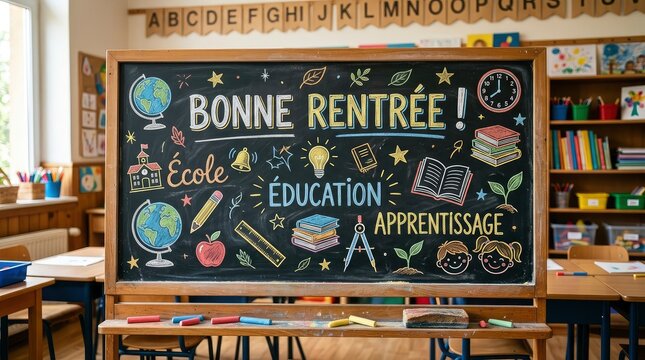 ABCDEFGHIJKLMNOPQRSTU
BONNE RENTRÉE !
École
ÉDUCATION
APPRENTISSAGE